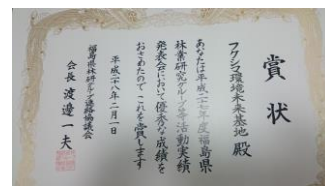 賞状
フクシマ環境未来基地 殿
あなたは平成二十七年度福島県
林業研究グループ等活動実績
発表会において優秀な成績を
おさめたのでこれを賞します
平成二十八年二月一日
福島県林研グループ連絡協議会
会長 渡邊一夫